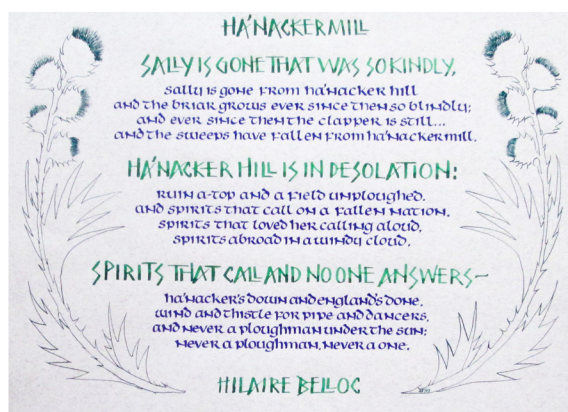 HA'NACKER MILL
SALLY IS GONE THAT WAS SO KINDLY,
sally is gone from ha'nacker hill
and the briar grows ever since then so blindly;
and ever since then the clapper is still...
and the sweeps have fallen from ha'nacker mill.
HA'NACKER HILL IS IN DESOLATION:
ruin a-top and a field unploughed.
and spirits that call on a fallen nation,
spirits that loved her calling aloud,
spirits abroad in a windy cloud.
SPIRITS THAT CALL AND NO ONE ANSWERS—
ha'nacker's down and england's done.
wind and thistle for pipe and dancers,
and never a ploughman under the sun:
never a ploughman, never a one.
HILAIRE BELLOC